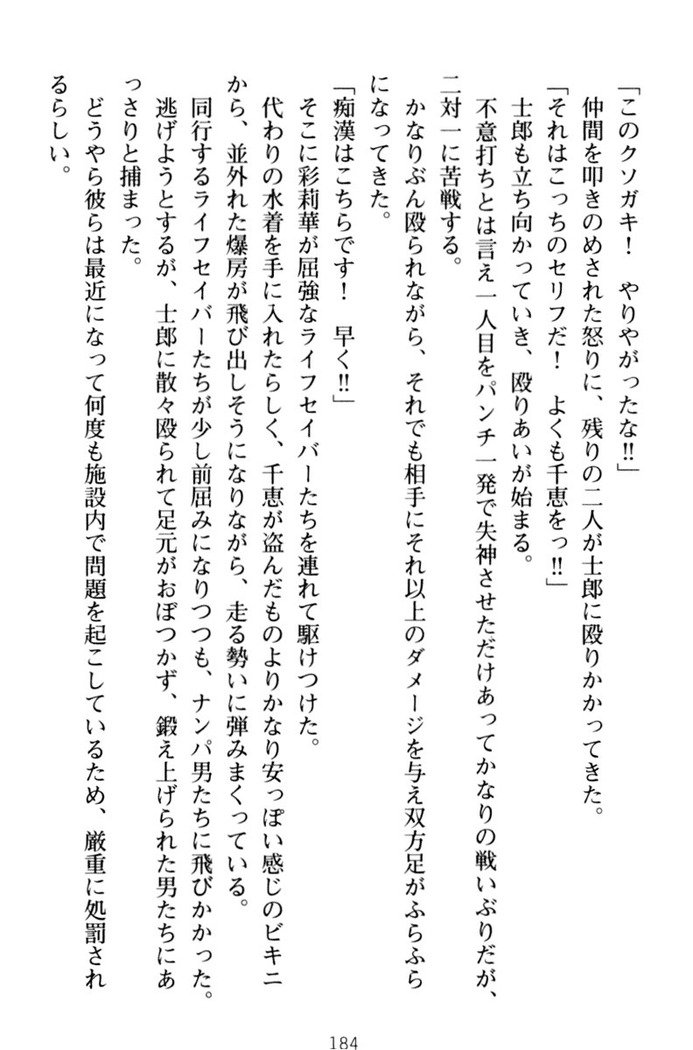 「このクソガキ！　やりやがったな!!」
仲間を叩きのめされた怒りに、残りの二人が士郎に殴りかかってきた。
「それはこっちのセリフだ！　よくも千恵をっ!!」
士郎も立ち向かっていき、殴りあいが始まる。
不意打ちとは言え一人目をパンチ一発で失神させただけあってかなりの戦いぶりだが、
二対一に苦戦する。
かなりぶん殴られながら、それでも相手にそれ以上のダメージを与え双方足がふらふら
になってきた。
「痴漢はこちらです！　早く!!」
そこに彩莉華が屈強なライフセイバーたちを連れて駆けつけた。
代わりの水着を手に入れたらしく、千恵が盗んだものよりかなり安っぽい感じのビキニ
から、並外れた爆房が飛び出しそうになりながら、走る勢いに弾みまくっている。
同行するライフセイバーたちが少し前屈みになりつつも、ナンパ男たちに飛びかかった。
逃げようとするが、士郎に散々殴られて足元がおぼつかず、鍛え上げられた男たちにあ
っさりと捕まった。
どうやら彼らは最近になって何度も施設内で問題を起こしているため、厳重に処罰され
るらしい。
184